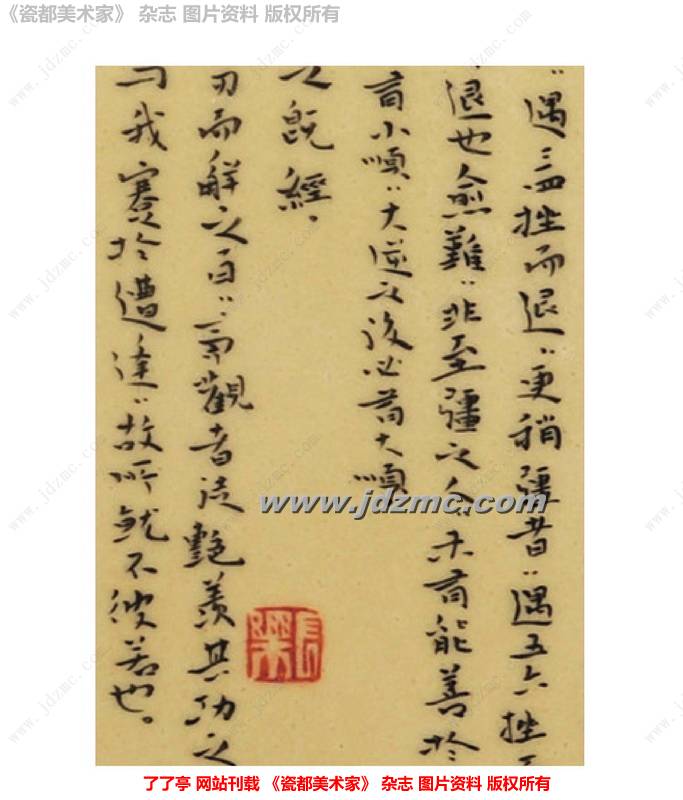 《瓷都美术家》 杂志 图片资料 版权所有
遇三四挫而退更稍彊者遇五六挫而
退也愈難非至彊之人未有能善於
有小順大逆之後必有大順
之既經
刃而解之一日旁觀者徒艷羨其功之
与我蹇於遭逢故所就不彼若也。
長樂
www.jdzmc.com
了了亭 网站刊载 《瓷都美术家》 杂志 图片资料 版权所有